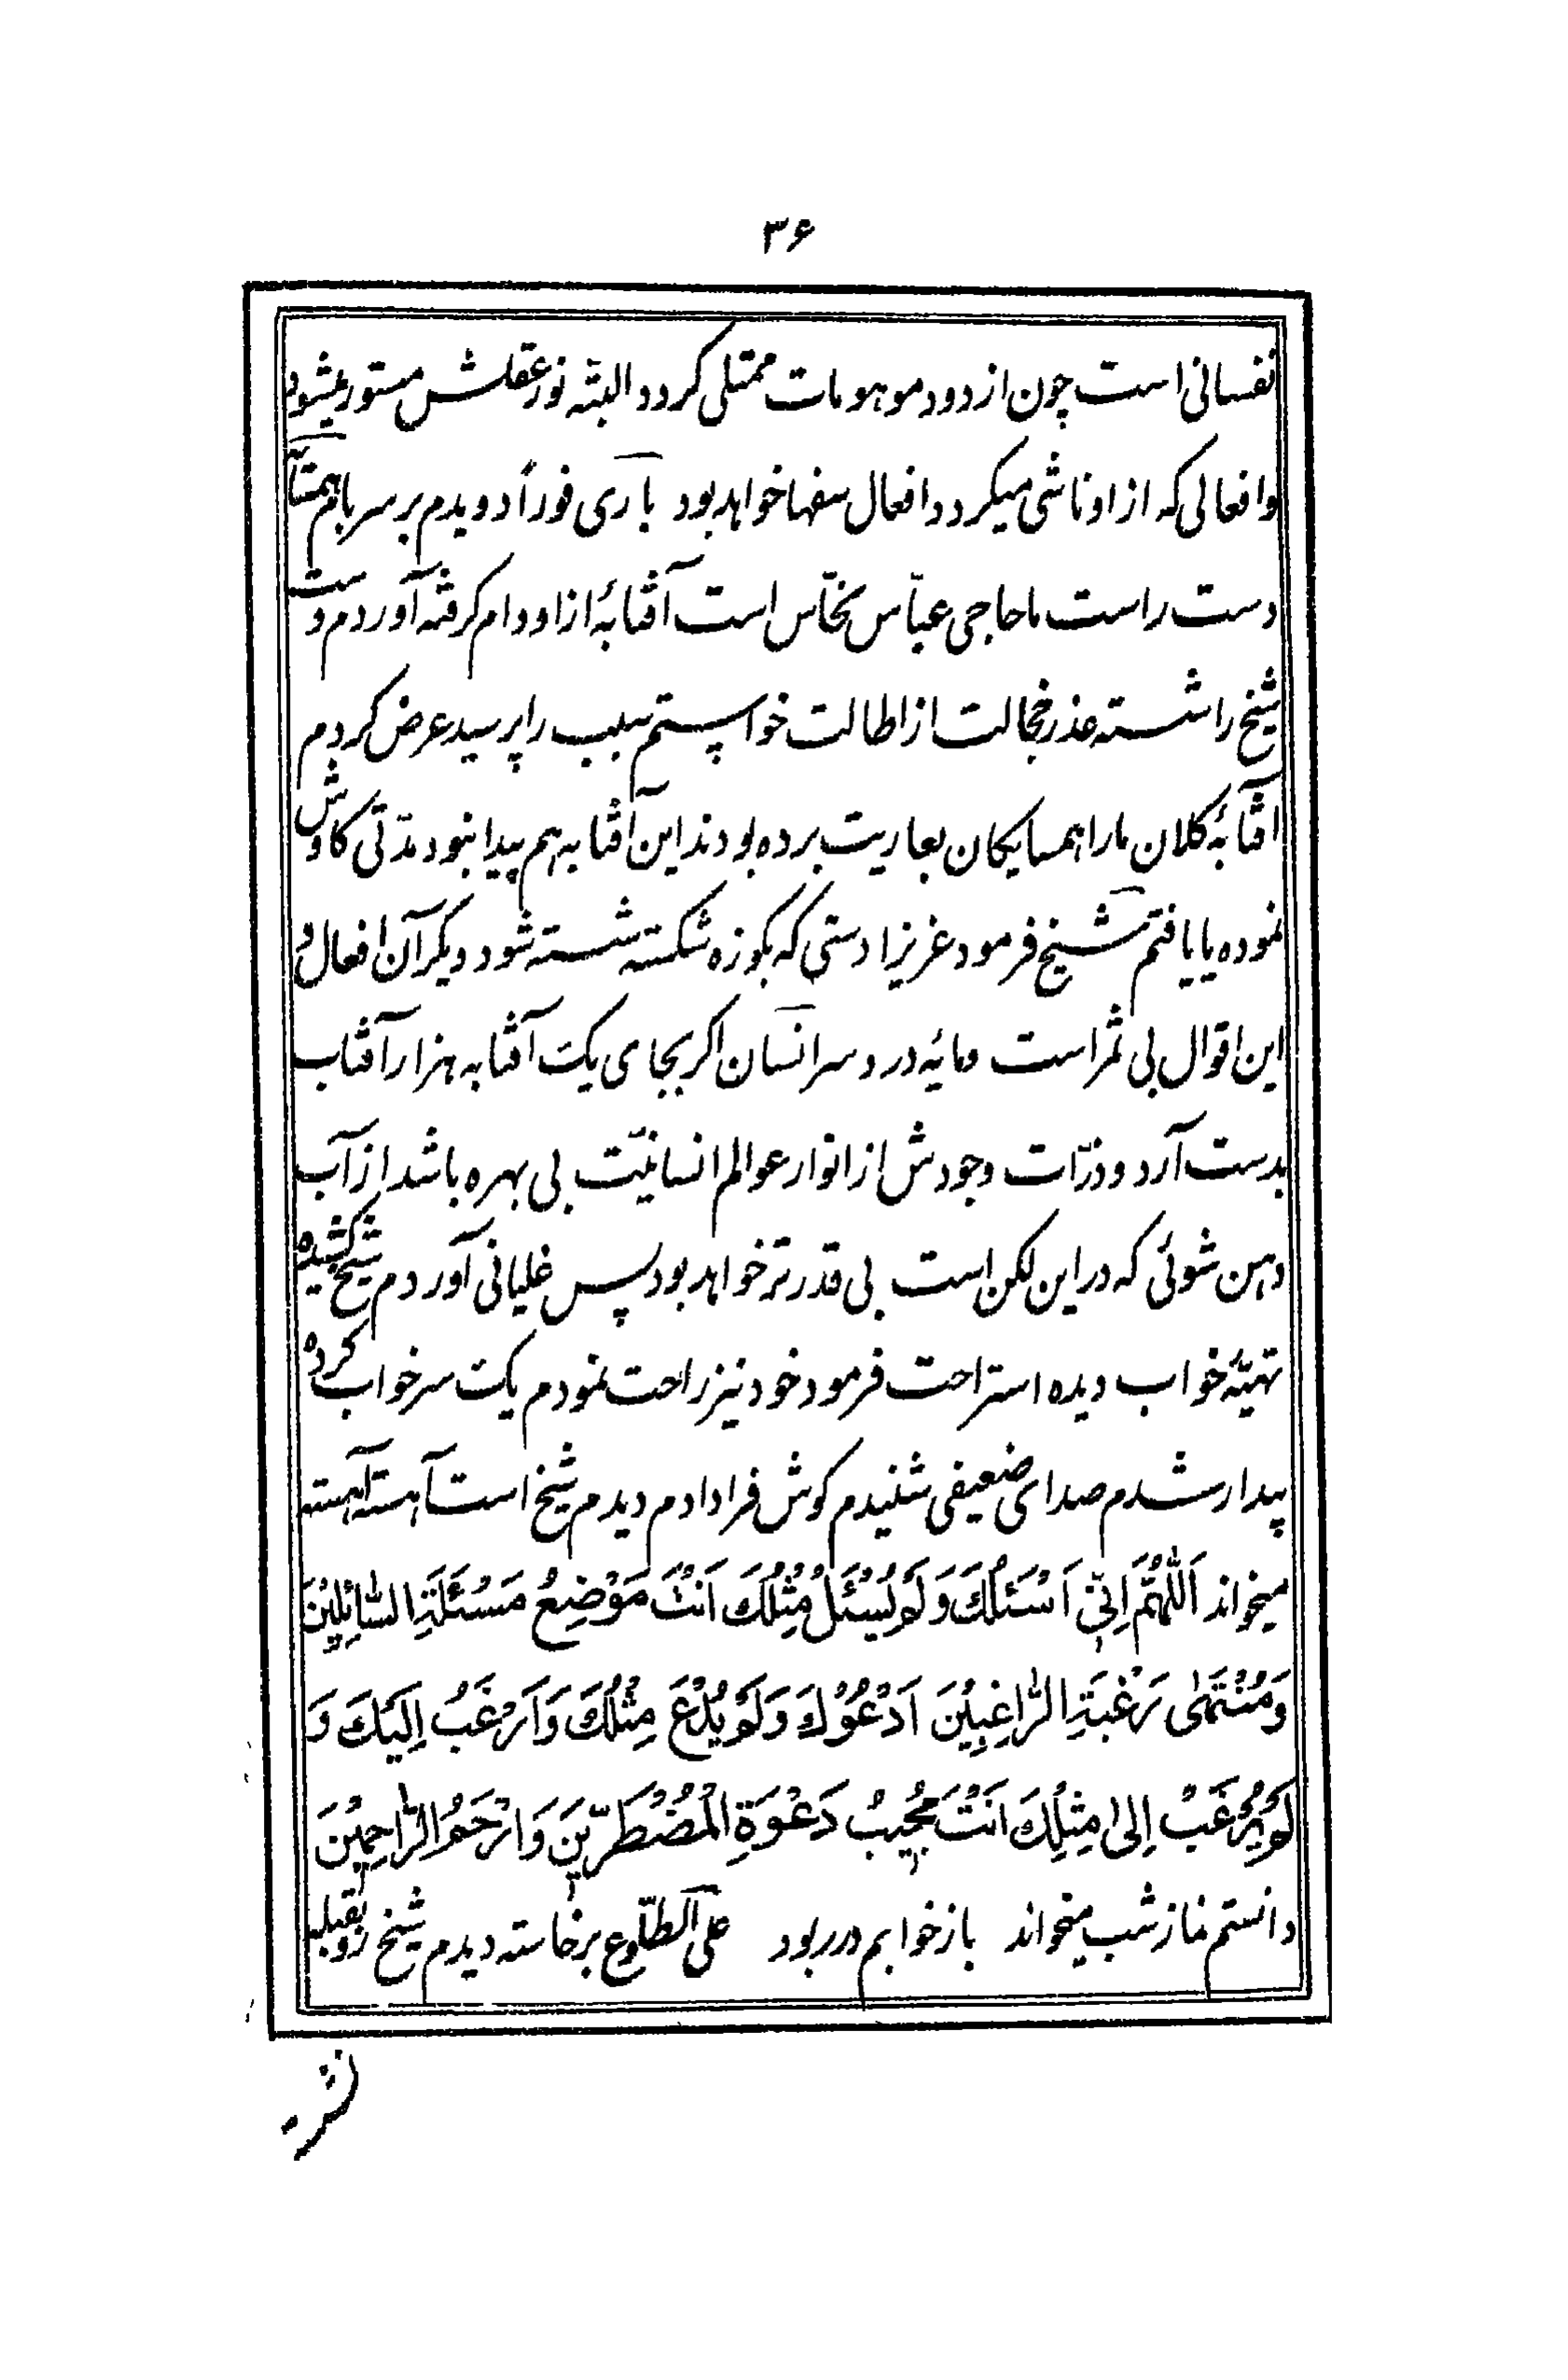 ۳۶
نفسانی است چون از دود موهومات ممتلی کردد البتّه نور عقلش مستور میشود
وافعالی که از او ناشی میکردد افعال سفها خواهد بود باری فوراً دویدم بر سر بام همسایه
دست راست ما حاجی عبّاس نخّاس است آفتابهٔ از او وام کرفته آوردم و دست
شیخ را شسته عذر خجالت از اطالت خواستم سبب را پرسید عرض کردم
آفتابهٔ کلان ما را همسایکان بعاریت برده بودند این آفتابه هم پیدا نبود مدّتی کاوش
نموده یا یافتم شیخ فرمود عزیزا دستی که بکوزه شکسته شسته شود دیکر آن افعال و
این اقوال بی ثمر است و مایهٔ درد سر انسان اکر بجای یک آفتابه هزار آفتاب
بدست آرد و ذرّات وجودش از انوار عوالم انسانیّت بی بهره باشد از آب
دهن شوئی که در این لکن است بی قدرتر خواهد بود پس غلیانی آوردم شیخ کشیده
تهیّهٔ خواب دیده استراحت فرمود خود نیز راحت نمودم یک سر خواب کرده
بیدار شدم صدای ضعیفی شنیدم کوش فرا دادم دیدم شیخ است آهسته آهسته
میخواند اَللّٰهُمَّ اِنّی اَسْئَلُكَ وَلَمْ یُسْئَلْ مِثْلُكَ اَنْتَ مَوْضِعُ مَسْئَلَةِ السّٰائِلِینَ
وَمُنْتَهٰی رَغْبَةِ الرّٰاغِبِینَ اَدْعُوُكَ وَلَمْ یُدْعَ مِثْلُكَ وَاَرْغَبُ اِلَیْكَ وَ
لَمْ یُرْغَبْ اِلیٰ مِثْلِكَ اَنْتَ مُجِیبُ دَعْوَةِ الْمُضْطَرّینَ وَ اَرْحَمُ الرّٰاحِمِینَ
دانستم نماز شب میخواند باز خوابم در ربود علی الطّلوع برخاسته دیدم شیخ رو بقبله